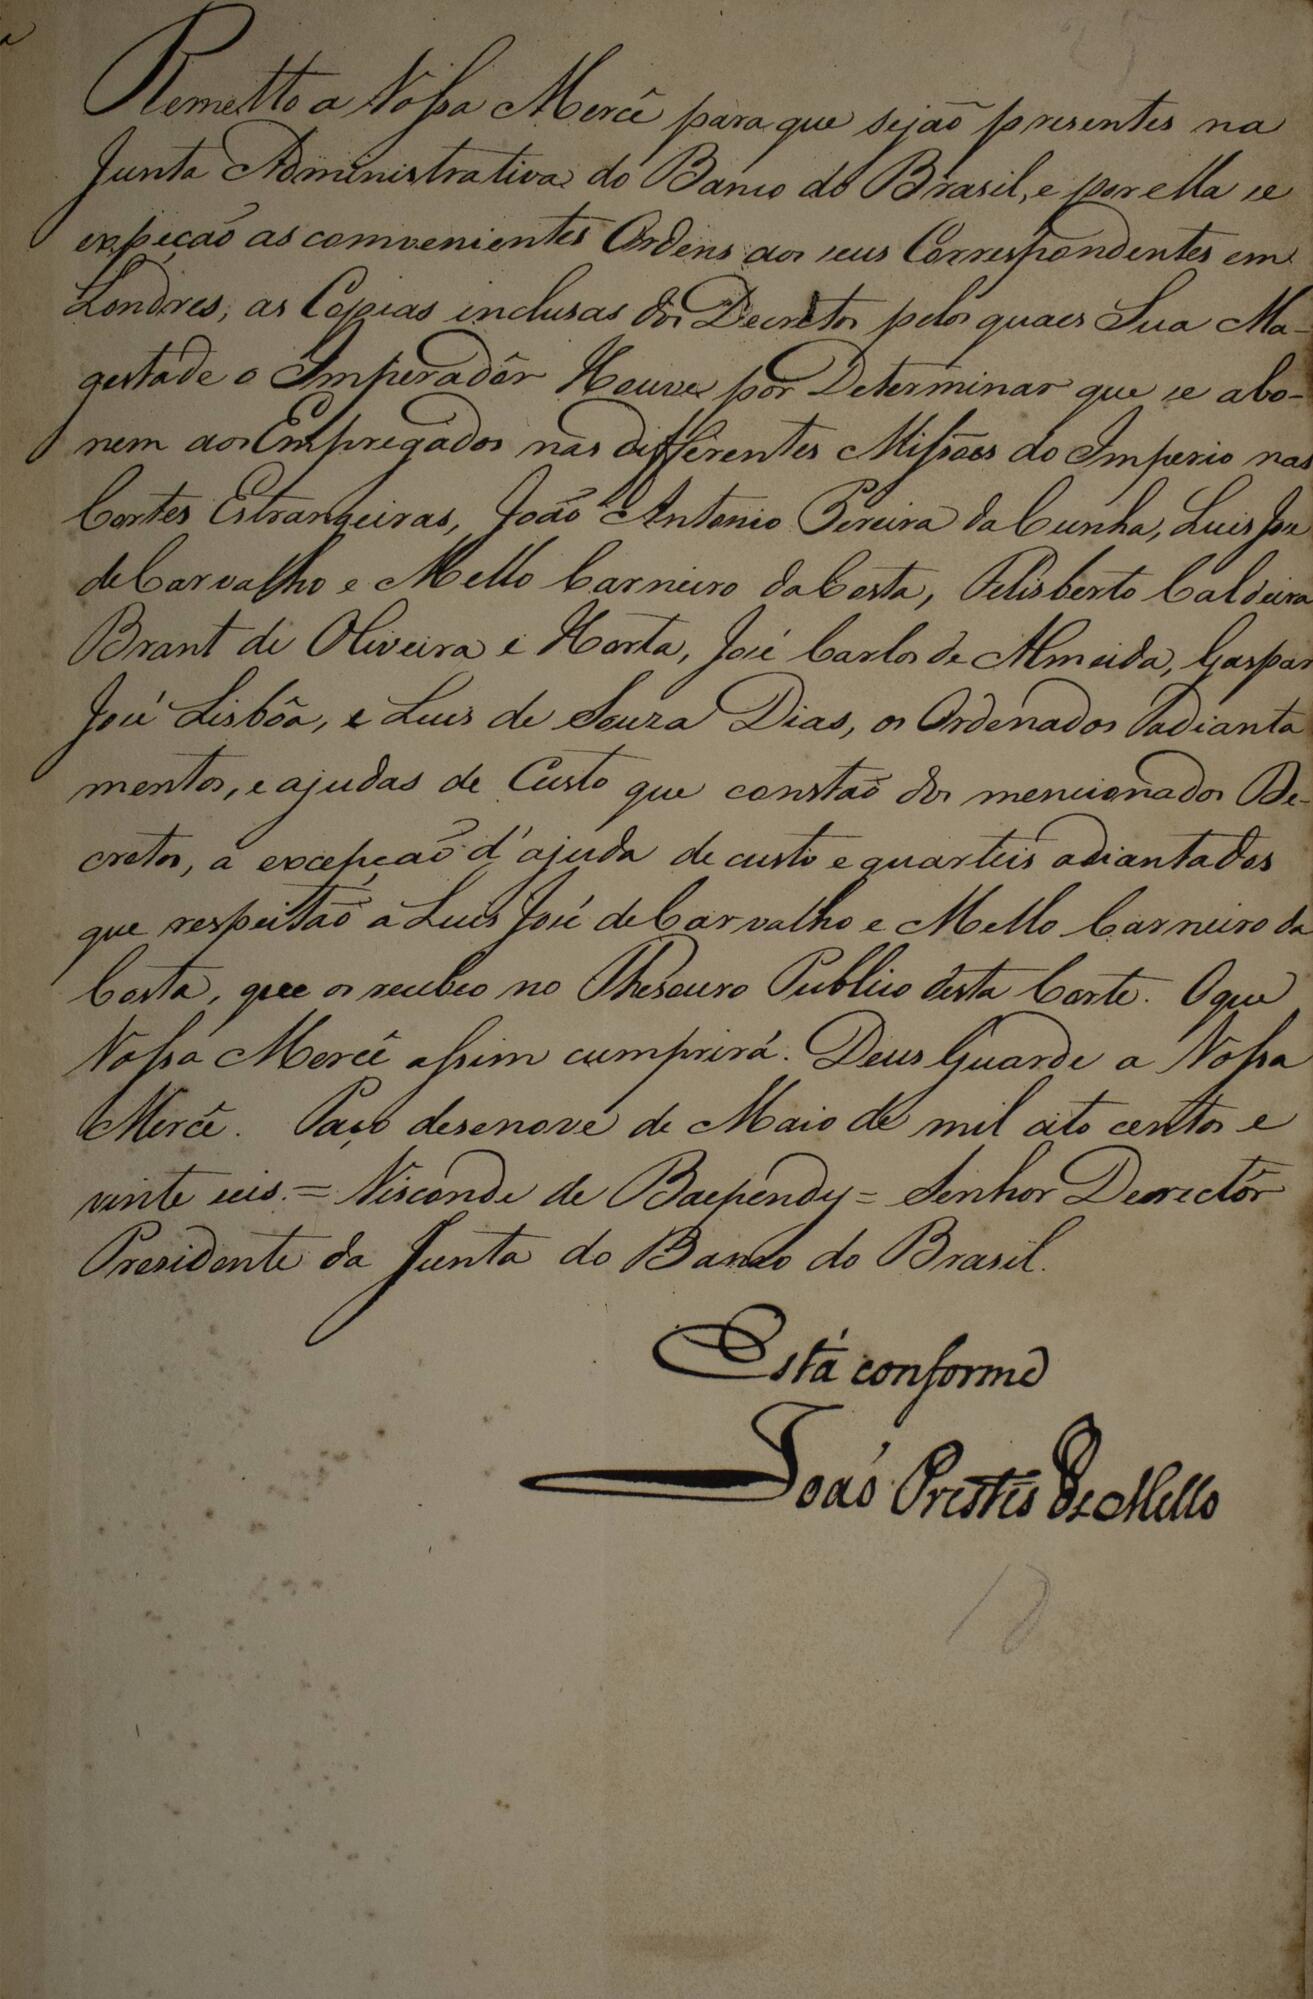 Remetto a Vossa Mercê para que sejão presentes na
Junta Administrativa do Banco do Brasil, e por ella se
expeção as convenientes Ordens aos seus Correspondentes em
Londres, as Copias inclusas dos Decretos pelos quaes Sua Ma-
gestade o Imperadôr Houve por Determinar que se abo-
nem aos Empregados nas differentes Missões do Imperio nas
Cortes Estrangeiras, João Antonio Pereira da Cunha, Luis José
de Carvalho e Mello Carneiro da Costa, Felisberto Caldeira
Brant de Oliveira e Horta, José Carlos de Almeida, Gaspar
José Lisbôa, e Luis de Souza Dias, os Ordenados adianta
mentos, e ajudas de Custo que constão dos mencionados De-
cretos, a excepção d'ajuda de custo e quarteis adiantados
que respeitão a Luis José de Carvalho e Mello Carneiro da
Costa, que os recebeo no Thesouro Publico desta Corte. O que
Vossa Mercê assim cumprirá. Deus Guarde a Vossa
Mercê. Paço desenove de Maio de mil oito centos e
vinte seis. = Visconde de Baependy = Senhor Derectôr
Presidente da Junta do Banco do Brasil.
Está conforme
João Prestes de Mello
18